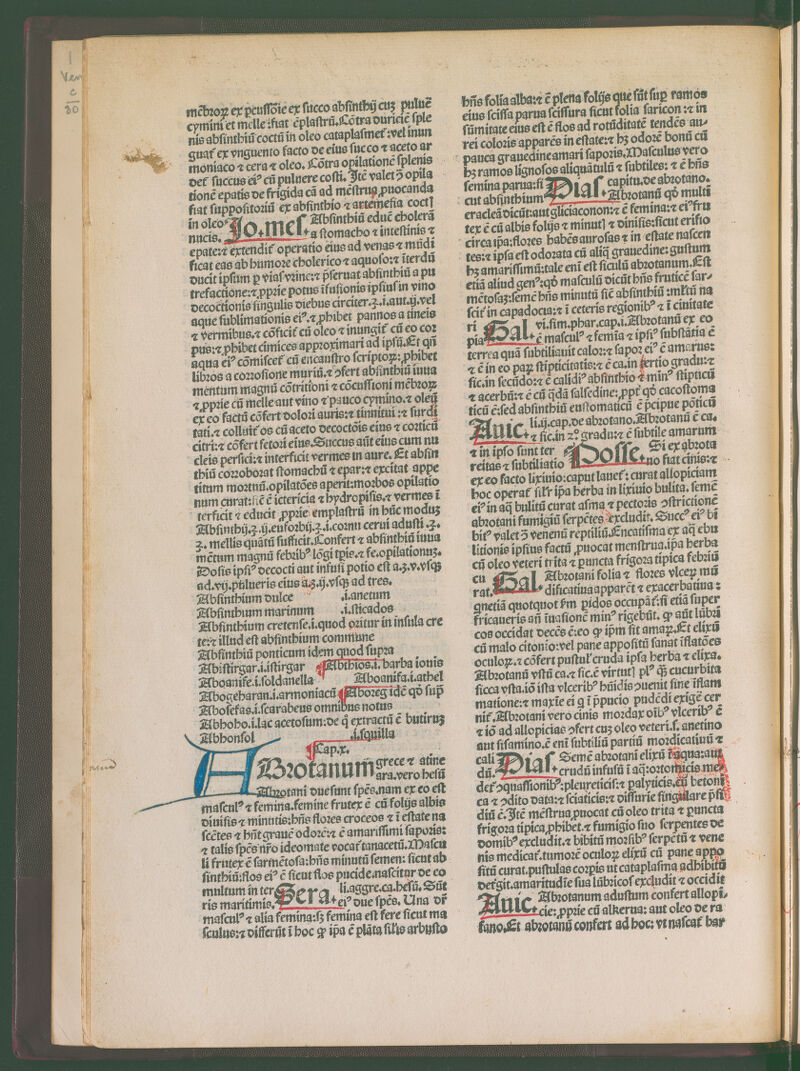 1
Ven
c
80
mẽbroꝝ ex pcussiõie ex succo absinthij cuȝ puluẽ
cymini et melle: fiat ẽplastrũ. Cõtra duriciẽ sple
nis absinthiũ coctũ in oleo cataplasmet᷑: vel inun
guat᷑ ex vnguento facto de eius succo ⁊ aceto ar
moniaco ⁊ cera ⁊ oleo. Cõtra opilationẽ splenis
det᷑ succus eiꝰ cũ puluere costi. Itẽ valet ꝯ opila
tionẽ epatis de frigida cã ad mẽstrua ꝓuocanda
fiat suppositoriũ ex absinthio ⁊ artemesia coct
in oleo Jo.mes. Absinthiũ educẽ cholerã
nucis. a stomacho ⁊ intestinis ⁊
epate: ⁊ extendit᷑ operatio eius ad venas ⁊ mũdi
ficat eas ab humore cholerico ⁊ aquoso: ⁊ iterdũ
ducit ipsum ꝑ vias vrine: ⁊ p̃seruat absinthiũ a pu
trefactione: ⁊ ꝓprie potus ifusionis ipsius in vino
decoctionis singulis diebus circiter.ʒ.i.aut.ij.vel
aque sublimationis eiꝰ. ⁊ ꝓhibet pannos a tineis
⁊ vermibus. ⁊ cõficit᷑ cũ oleo ⁊ inungit᷑ cũ eo cor
pus: ⁊ ꝓhibet cimices approximari ad ipsũ. Et qñ
aqua eiꝰ cõmiscet᷑ cũ encaustro scriptoꝝ: ꝓhibet
libros a corrosione muriũ. ⁊ ꝯfert absinthiũ iuua
mentum magnũ cõtritioni ⁊ cõcussioni mẽbroꝝ
⁊ ꝓprie cũ melle aut vino ⁊ pauco cymino. ⁊ oleũ
ex eo factũ cõfert dolori auris: ⁊ tinnitui: ⁊ surdi
tati. ⁊ colluit᷑ os cũ aceto decoctõis eius ⁊ corticũ
citri: ⁊ cõfert fetori eius. Succus aũt eius cum nu
cleis persici: ⁊ interficit vermes in aure. Et absin
thiũ corroborat stomachũ ⁊ epar: ⁊ excitat appe
titum mortuũ. opilatões aperit: morbos opilatio
num curat: sic̃ ẽ ictericia ⁊ hydropisis. ⁊ vermes i
terficit ⁊ educit ꝓprie emplastrũ in hũc moduȝ
Absinthij.ʒ.ij.euforbij.ʒ.i.cornu cerui adusti.ʒ.
ʒ. mellis quãtũ sufficit. Confert ⁊ absinthiũ iuua
mẽtum magnũ febribꝰ lõgi tp̃is. ⁊ fe.opilationuȝ.
Dosis ipsiꝰ decocti aut infusi potio est a.ʒ.v.vsqȝ
ad.vij.ptlueris eius a.ʒ.ij.vsqȝ ad tres.
Absinthium dulce .i.anetum
Absinthium marinum .i.sticados
Absinthium cretense.i.quod oritur in insula cre
te: ⁊ illud est absinthium commune
Absinthiũ ponticum idem quod supra
Abistirgar.i.istirgar ¶Abthios.i. barba iouis
Aboanise.i.soldanella Aboanisa.i.athel
Abogeharan.i.armoniacũ ¶Aboreg idẽ qð sup̃
Abosefas.i.scarabeus omnibus notus
Abhoho.i.lac acetosum: de q̃ extractũ ẽ butiruȝ
Abhonsol .i.squilla
¶Cap.x.
ABrotanum̃ grece ⁊ atine
ara.vero hesũ
Abrotani due sunt sp̃es. nam ex eo est
masculꝰ ⁊ femina. femine frutex ẽ cũ folijs albis
diuisis ⁊ minutis: hñs flores croceos ⁊ i estate na
scẽtes ⁊ hñt grauẽ odorẽ: ⁊ ẽ amarissimi saporis:
⁊ talis sp̃es nr̃o ideomate vocat᷑ tanacetũ. Mascu
li frutex ẽ sarmẽtosa: hñs minutũ semen: sicut ab
sinthiũ: flos eiꝰ ẽ sicut flos pucide. nascitur de eo
multum in ter Sera. li.aggre.ca.hesũ. Sũt
ris maritimis. eiꝰ due sp̃es. Una dr̃
masculꝰ ⁊ alia femina: sȝ femina est fere sicut ma
sculus: ⁊ differũt i hoc qꝛ ip̃a ẽ plãta sil̃is arbusto
hñs folia alba: ⁊ ẽ plena folijs que sũt sup̃ ramos
eius scissa parua scissura sicut folia saricon: ⁊ in
sũmitate eius est ẽ flos ad rotũditatẽ tendẽs au-
rei coloris apparẽs in estate: ⁊ hȝ odorẽ bonũ cũ
pauca grauedine amari saporis. Masculus vero
hȝ ramos lignosos aliquãtulũ ⁊ subtiles: ⁊ ẽ hñs
semina parua: si Dias. capitu.de abrotano.
cut absinthium Abrotanũ qð multi
eracleã dicũt: aut gliciaconon: ⁊ ẽ femina: ⁊ eiꝰ fru
tex ẽ cũ albis folijs ⁊ minut ⁊ diuisis: sicut erisio
circa ip̃a: flores habẽs aurosas ⁊ in estate nascen
tes: ⁊ ipsa est odorata cũ aliq̃ grauedine: gustum
hȝ amarissimũ: tale enĩ est siculũ abrotanum. Est
etiã aliud genꝰ: qð masculũ dicũt hñs fruticẽ sar-
mẽtosaȝ: semẽ hñs minutũ sic̃ absinthiũ: mltũ na
scit᷑ in capadocia: ⁊ i ceteris regionibꝰ ⁊ i ciuitate
ri Gal. vi.sim.phar.cap.i. Abrotanũ ex eo
pia ẽ masculꝰ ⁊ femĩa ⁊ ipsiꝰ substãtia ẽ
terrea quã subtiliauit calor: ⁊ sapor eiꝰ ẽ amarus:
⁊ ẽ in eo paꝝ stipticitatis: ⁊ ẽ ca.in tertio gradu: ⁊
sic.in secũdo: ⁊ ẽ calidiꝰ absinthio ⁊ minꝰ stipticũ
⁊ acerbũ: ⁊ ẽ cũ q̃dã salsedine: ꝓpt᷑ qð cacostoma
ticũ ẽ: sed absinthiũ eustomaticũ ẽ p̃cipue põticũ
Auic. li.ij.cap.de abrotano. Abrotanũ ẽ ca.
⁊ sic.in 2º.gradu: ⁊ ẽ subtile amarum
⁊ in ipso sunt ter Posse. Si ex abrota
reitas ⁊ subtiliatio no fiat cinis: ⁊
ex eo facto lixiuio: caput lauet᷑: curat allopiciam
hoc operat᷑ sil̃r ip̃a herba in lixiuio bulita. semẽ
eiꝰ in aq̃ bulitũ curat asma ⁊ pectoris ꝯstrictionẽ
abrotani fumigiũ serpẽtes excludit. Succꝰ eiꝰ bi
bitꝰ valet ꝯ venenũ reptiliũ. Encatisma ex aq̃ ebu
litionis ipsius factũ ꝓuocat menstrua. ip̃a herba
cũ oleo veteri trita ⁊ puncta frigora tipica febriũ
cu Gal. Abrotani folia ⁊ flores vlceꝝ mũ
rat. dificatiua apparẽt ⁊ exacerbatiua:
q̃netiã quotquot fm̃ p̃idos occupãt᷑: si etiã super
fricaueris añ iuasionẽ minꝰ rigebũt. qꝛ aũt lũbri
cos occidat decẽs ẽ: eo qꝛ ip̃m sit amaꝝ. Et elixũ
cũ malo citonio: vel pane appositũ sanat iflatões
oculoꝝ. ⁊ cõfert pustul᷑ cruda ipsa herba ⁊ elixa.
Abrotanũ vsta ẽ ca.⁊ sic.ẽ virtut plꝰ q̃ȝ cucurbita
sicca vsta. iõ ista vlceribꝰ hũidis ꝯuenit sine iflam
matione: ⁊ maxie ei q̃ i p̃pucio pudẽdi exigẽ cer
nit᷑. Abrotani vero cinis mordax oĩbꝰ vlceribꝰ ẽ
⁊ iõ ad allopiciaȝ ꝯfert cuȝ oleo veteri.s.anetino
aut sisamino. ẽ enĩ subtiliũ partiũ mordicatiuũ ⁊
cali Dias. Semẽ abrotani elixũ ĩ aqua: aut
dũ. crudũ infusũ ĩ aq̃: ortomicis me
det᷑ ꝯquassionibꝰ: pleureticis: ⁊ palyticis. cũ betoni
ca ⁊ ꝯdito data: ⁊ sciaticis: ⁊ dissurie singulare p̃si
diũ ẽ. Itẽ mẽstrua ꝓuocat cũ oleo trita ⁊ puncta
frigora tipica ꝓhibet. ⁊ fumigio suo serpentes de
domibꝰ excludit. ⁊ bibitũ morsibꝰ serpẽtũ ⁊ vene
nis medicat᷑. tumorẽ oculoꝝ elixũ cũ pane appo
sitũ curat. pustulas corpis ut cataplasma adhibitũ
det᷑git. amaritudie sua lũbricos excludit ⁊ occidit
Auic. Abrotanum adustum confert allopi-
cie: ꝓprie cũ alkerua: aut oleo de ra
fano. Et abrotanũ confert ad hoc: vt nascat᷑ bar